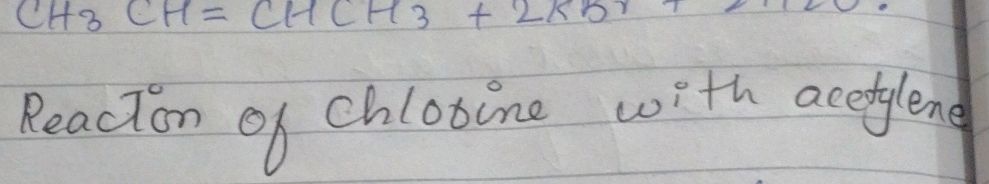 CH3 CH = CHCH3 + 2KBr + 2H2O.
Reaction of chlorine with acetylene